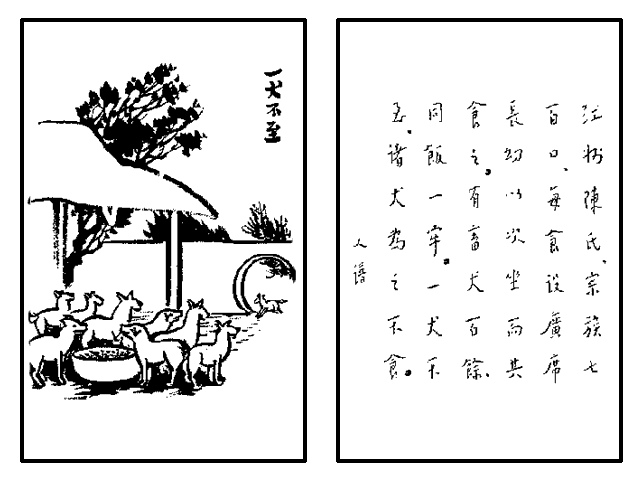 一犬不至
江州陳氏、宗族七
百口、每食設廣席
長幼以次坐而共
食之。有畜犬百餘、
同飯一牢。一犬不
至、諸犬為之不食。
人譜